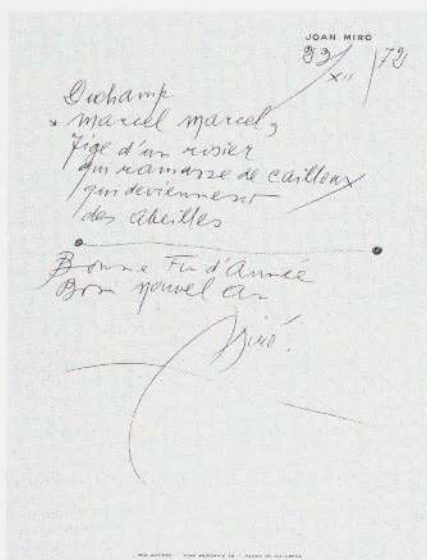 JOAN MIRÓ
23/XII/72
Duchamp
Marcel Marcel,
Tige d'un rosier
qui ramasse de cailloux
qui deviennent
des abeilles
Bonne Fin d'Année
Bon nouvel an
Miró.